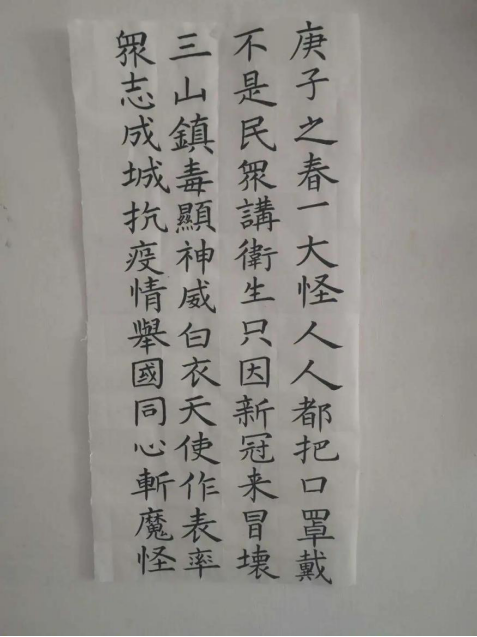 庚子之春一大怪人人都把口罩戴
不是民眾講衛生只因新冠来冒壞
三山鎮毒顯神威白衣天使作表率
眾志成城抗疫情舉國同心斬魔怪